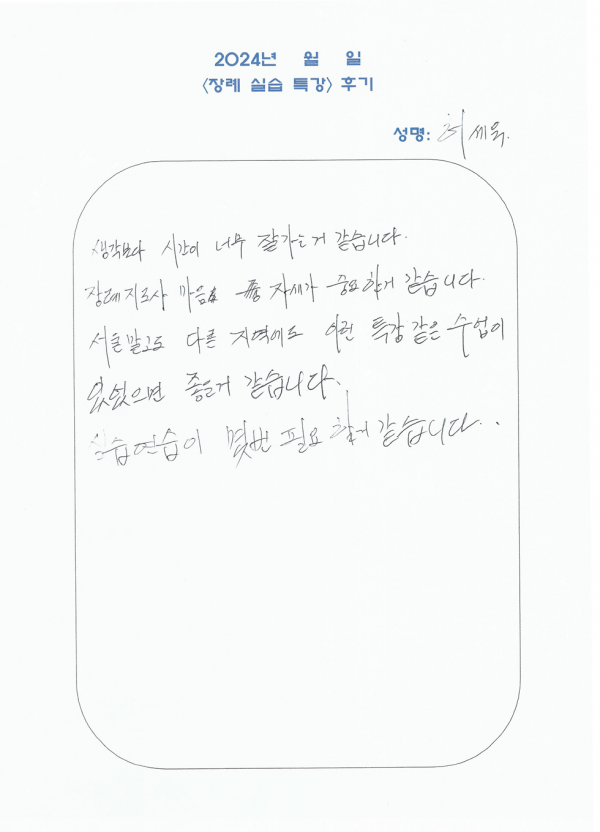 2024년 월 일
<장례 실습 특강> 후기
성명: 허세욱.
생각보다 시간이 너무 잘가는거 같습니다.
장례지도사 마음 자세가 중요한거 같습니다.
서울말고도 다른 지역에도 이런 특강 같은 수업이
있었으면 좋을거 같습니다.
실습연습이 몇번 필요 할거 같습니다..